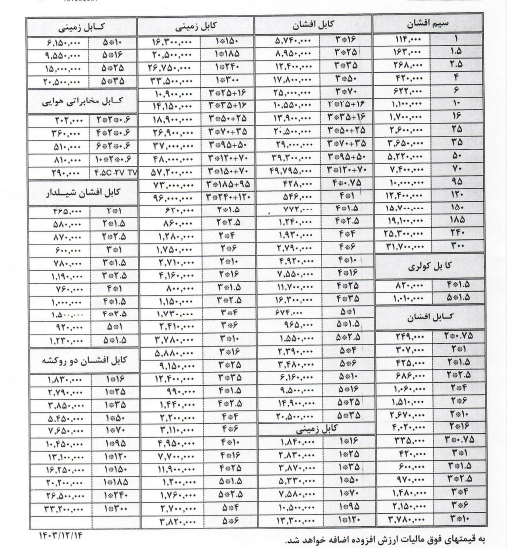 سیم افشان
۱ ۱۱۴,۰۰۰
۱.۵ ۱۶۳,۰۰۰
۲.۵ ۲۶۸,۰۰۰
۴ ۴۲۰,۰۰۰
۶ ۶۲۲,۰۰۰
۱۰ ۱,۱۰۰,۰۰۰
۱۶ ۱,۷۰۰,۰۰۰
۲۵ ۲,۶۰۰,۰۰۰
۳۵ ۳,۶۵۰,۰۰۰
۵۰ ۵,۲۲۰,۰۰۰
۷۰ ۷,۴۰۰,۰۰۰
۹۵ ۱۰,۰۰۰,۰۰۰
۱۲۰ ۱۲,۴۰۰,۰۰۰
۱۵۰ ۱۵,۷۰۰,۰۰۰
۱۸۵ ۱۹,۱۰۰,۰۰۰
۲۴۰ ۲۵,۳۰۰,۰۰۰
۳۰۰ ۳۱,۷۰۰,۰۰۰
کابل کولری
۴*۱.۵ ۸۲۰,۰۰۰
۵*۱.۵ ۱,۰۱۰,۰۰۰
کابل افشان
۲*۰.۷۵ ۲۴۹,۰۰۰
۲*۱ ۳۰۷,۰۰۰
۲*۱.۵ ۴۲۵,۰۰۰
۲*۲.۵ ۶۸۶,۰۰۰
۲*۴ ۱,۰۶۰,۰۰۰
۲*۶ ۱,۵۱۰,۰۰۰
۲*۱۰ ۲,۶۷۰,۰۰۰
۲*۱۶ ۴,۰۲۰,۰۰۰
۳*۰.۷۵ ۳۳۵,۰۰۰
۳*۱ ۴۲۰,۰۰۰
۳*۱.۵ ۶۰۰,۰۰۰
۳*۲.۵ ۹۷۰,۰۰۰
۳*۴ ۱,۴۸۰,۰۰۰
۳*۶ ۲,۱۵۰,۰۰۰
۳*۱۰ ۳,۷۸۰,۰۰۰
کابل افشان
۳*۱۶ ۵,۷۴۰,۰۰۰
۳*۲۵ ۸,۹۵۰,۰۰۰
۳*۳۵ ۱۲,۴۰۰,۰۰۰
۳*۵۰ ۱۷,۸۰۰,۰۰۰
۳*۷۰ ۲۵,۰۰۰,۰۰۰
۳*۲۵+۱۶ ۱۰,۵۵۰,۰۰۰
۳*۳۵+۱۶ ۱۳,۹۰۰,۰۰۰
۳*۵۰+۲۵ ۲۰,۵۰۰,۰۰۰
۳*۷۰+۳۵ ۲۹,۰۰۰,۰۰۰
۳*۹۵+۵۰ ۳۹,۳۰۰,۰۰۰
۳*۱۲۰+۷۰ ۴۹,۷۹۵,۰۰۰
۴*۰.۷۵ ۴۲۸,۰۰۰
۴*۱ ۵۴۶,۰۰۰
۴*۱.۵ ۷۷۲,۰۰۰
۴*۲.۵ ۱,۲۴۰,۰۰۰
۴*۴ ۱,۹۳۰,۰۰۰
۴*۶ ۲,۷۹۰,۰۰۰
۴*۱۰ ۴,۹۲۰,۰۰۰
۴*۱۶ ۷,۵۵۰,۰۰۰
۴*۲۵ ۱۱,۷۰۰,۰۰۰
۴*۳۵ ۱۶,۳۰۰,۰۰۰
۵*۱ ۶۷۴,۰۰۰
۵*۱.۵ ۹۶۵,۰۰۰
۵*۲.۵ ۱,۵۵۰,۰۰۰
۵*۴ ۲,۳۹۰,۰۰۰
۵*۶ ۳,۴۸۰,۰۰۰
۵*۱۰ ۶,۱۶۰,۰۰۰
۵*۱۶ ۹,۵۰۰,۰۰۰
۵*۲۵ ۱۴,۹۰۰,۰۰۰
۵*۳۵ ۲۰,۵۰۰,۰۰۰
کابل زمینی
۱*۱۶ ۱,۸۴۰,۰۰۰
۱*۲۵ ۲,۸۳۰,۰۰۰
۱*۳۵ ۳,۸۷۰,۰۰۰
۱*۵۰ ۵,۳۳۰,۰۰۰
۱*۷۰ ۷,۵۸۰,۰۰۰
۱*۹۵ ۱۰,۵۰۰,۰۰۰
۱*۱۲۰ ۱۳,۳۰۰,۰۰۰
کابل زمینی
۱*۱۵۰ ۱۶,۳۰۰,۰۰۰
۱*۱۸۵ ۲۰,۵۰۰,۰۰۰
۱*۲۴۰ ۲۶,۷۵۰,۰۰۰
۱*۳۰۰ ۳۳,۵۰۰,۰۰۰
۳*۲۵+۱۶ ۱۰,۹۰۰,۰۰۰
۳*۳۵+۱۶ ۱۴,۱۵۰,۰۰۰
۳*۵۰+۲۵ ۱۸,۹۰۰,۰۰۰
۳*۷۰+۳۵ ۲۶,۹۰۰,۰۰۰
۳*۹۵+۵۰ ۳۷,۰۰۰,۰۰۰
۳*۱۲۰+۷۰ ۴۸,۰۰۰,۰۰۰
۳*۱۵۰+۷۰ ۵۷,۲۰۰,۰۰۰
۳*۱۸۵+۹۵ ۷۳,۰۰۰,۰۰۰
۳*۲۴۰+۱۲۰ ۹۶,۰۰۰,۰۰۰
۲*۱.۵ ۶۲۰,۰۰۰
۲*۲.۵ ۸۶۰,۰۰۰
۲*۴ ۱,۲۸۰,۰۰۰
۲*۶ ۱,۷۵۰,۰۰۰
۲*۱۰ ۲,۷۱۰,۰۰۰
۲*۱۶ ۴,۱۶۰,۰۰۰
۳*۱.۵ ۸۰۰,۰۰۰
۳*۲.۵ ۱,۱۵۰,۰۰۰
۳*۴ ۱,۷۳۰,۰۰۰
۳*۶ ۲,۴۱۰,۰۰۰
۳*۱۰ ۳,۷۸۰,۰۰۰
۳*۱۶ ۵,۸۸۰,۰۰۰
۳*۲۵ ۹,۱۵۰,۰۰۰
۳*۳۵ ۱۲,۴۰۰,۰۰۰
۴*۱.۵ ۹۹۰,۰۰۰
۴*۲.۵ ۱,۴۴۰,۰۰۰
۴*۴ ۲,۲۰۰,۰۰۰
۴*۶ ۳,۱۱۰,۰۰۰
۴*۱۰ ۴,۹۵۰,۰۰۰
۴*۱۶ ۷,۷۰۰,۰۰۰
۴*۲۵ ۱۱,۹۰۰,۰۰۰
۵*۱.۵ ۱,۲۰۰,۰۰۰
۵*۲.۵ ۱,۷۶۰,۰۰۰
۵*۴ ۲,۷۰۰,۰۰۰
۵*۶ ۳,۸۲۰,۰۰۰
کابل زمینی
۵*۱۰ ۶,۱۵۰,۰۰۰
۵*۱۶ ۹,۵۵۰,۰۰۰
۵*۲۵ ۱۵,۰۰۰,۰۰۰
۵*۳۵ ۲۰,۵۰۰,۰۰۰
کابل مخابراتی هوایی
۲*۲*۰.۶ ۲۰۲,۰۰۰
۴*۲*۰.۶ ۳۶۰,۰۰۰
۶*۲*۰.۶ ۵۱۰,۰۰۰
۱۰*۲*۰.۶ ۸۱۰,۰۰۰
۴.۵C ۲V TV ۲۹۰,۰۰۰
کابل افشان شیلدار
۲*۱ ۴۶۵,۰۰۰
۲*۱.۵ ۵۸۰,۰۰۰
۲*۲.۵ ۸۷۰,۰۰۰
۳*۱ ۶۰۰,۰۰۰
۳*۱.۵ ۷۸۰,۰۰۰
۳*۲.۵ ۱,۱۹۰,۰۰۰
۴*۱ ۷۶۰,۰۰۰
۴*۱.۵ ۱,۰۰۰,۰۰۰
۴*۲.۵ ۱,۵۰۰,۰۰۰
۵*۱ ۹۲۰,۰۰۰
۵*۱.۵ ۱,۲۳۰,۰۰۰
کابل افشان دو روکشه
۱*۱۶ ۱,۸۳۰,۰۰۰
۱*۲۵ ۲,۷۹۰,۰۰۰
۱*۳۵ ۳,۸۵۰,۰۰۰
۱*۵۰ ۵,۴۵۰,۰۰۰
۱*۷۰ ۷,۶۵۰,۰۰۰
۱*۹۵ ۱۰,۴۵۰,۰۰۰
۱*۱۲۰ ۱۳,۱۰۰,۰۰۰
۱*۱۵۰ ۱۶,۲۵۰,۰۰۰
۱*۱۸۵ ۲۰,۲۰۰,۰۰۰
۱*۲۴۰ ۲۶,۵۰۰,۰۰۰
۱*۳۰۰ ۳۳,۲۰۰,۰۰۰
به قیمتهای فوق مالیات ارزش افزوده اضافه خواهد شد. ۱۴۰۳/۱۲/۱۴